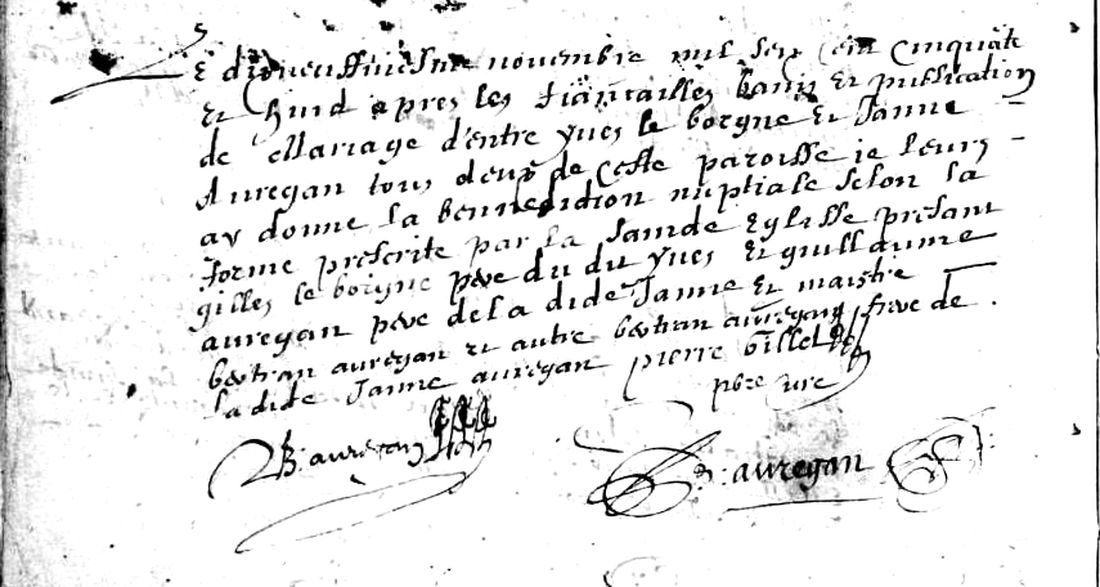 Le dixneuffviesme novembre mil sep cent cinquāte
et huid apres les fiancailles banis et publication
de Mariage d'entre yves le borgne et Janne
Auregan tous deux de ceste paroisse je leurs
ay donne la bennediction nuptiale selon la
forme prescrite par la saincte Eglisse presant
gilles le borgne pere du dit yves et guillaume
auregan pere de la dide Janne et maistre
bertran auregan et autre bertran auregan frere de
la dide Janne auregan pierre Gillet
pbre cure
B: auregan
B: auregan